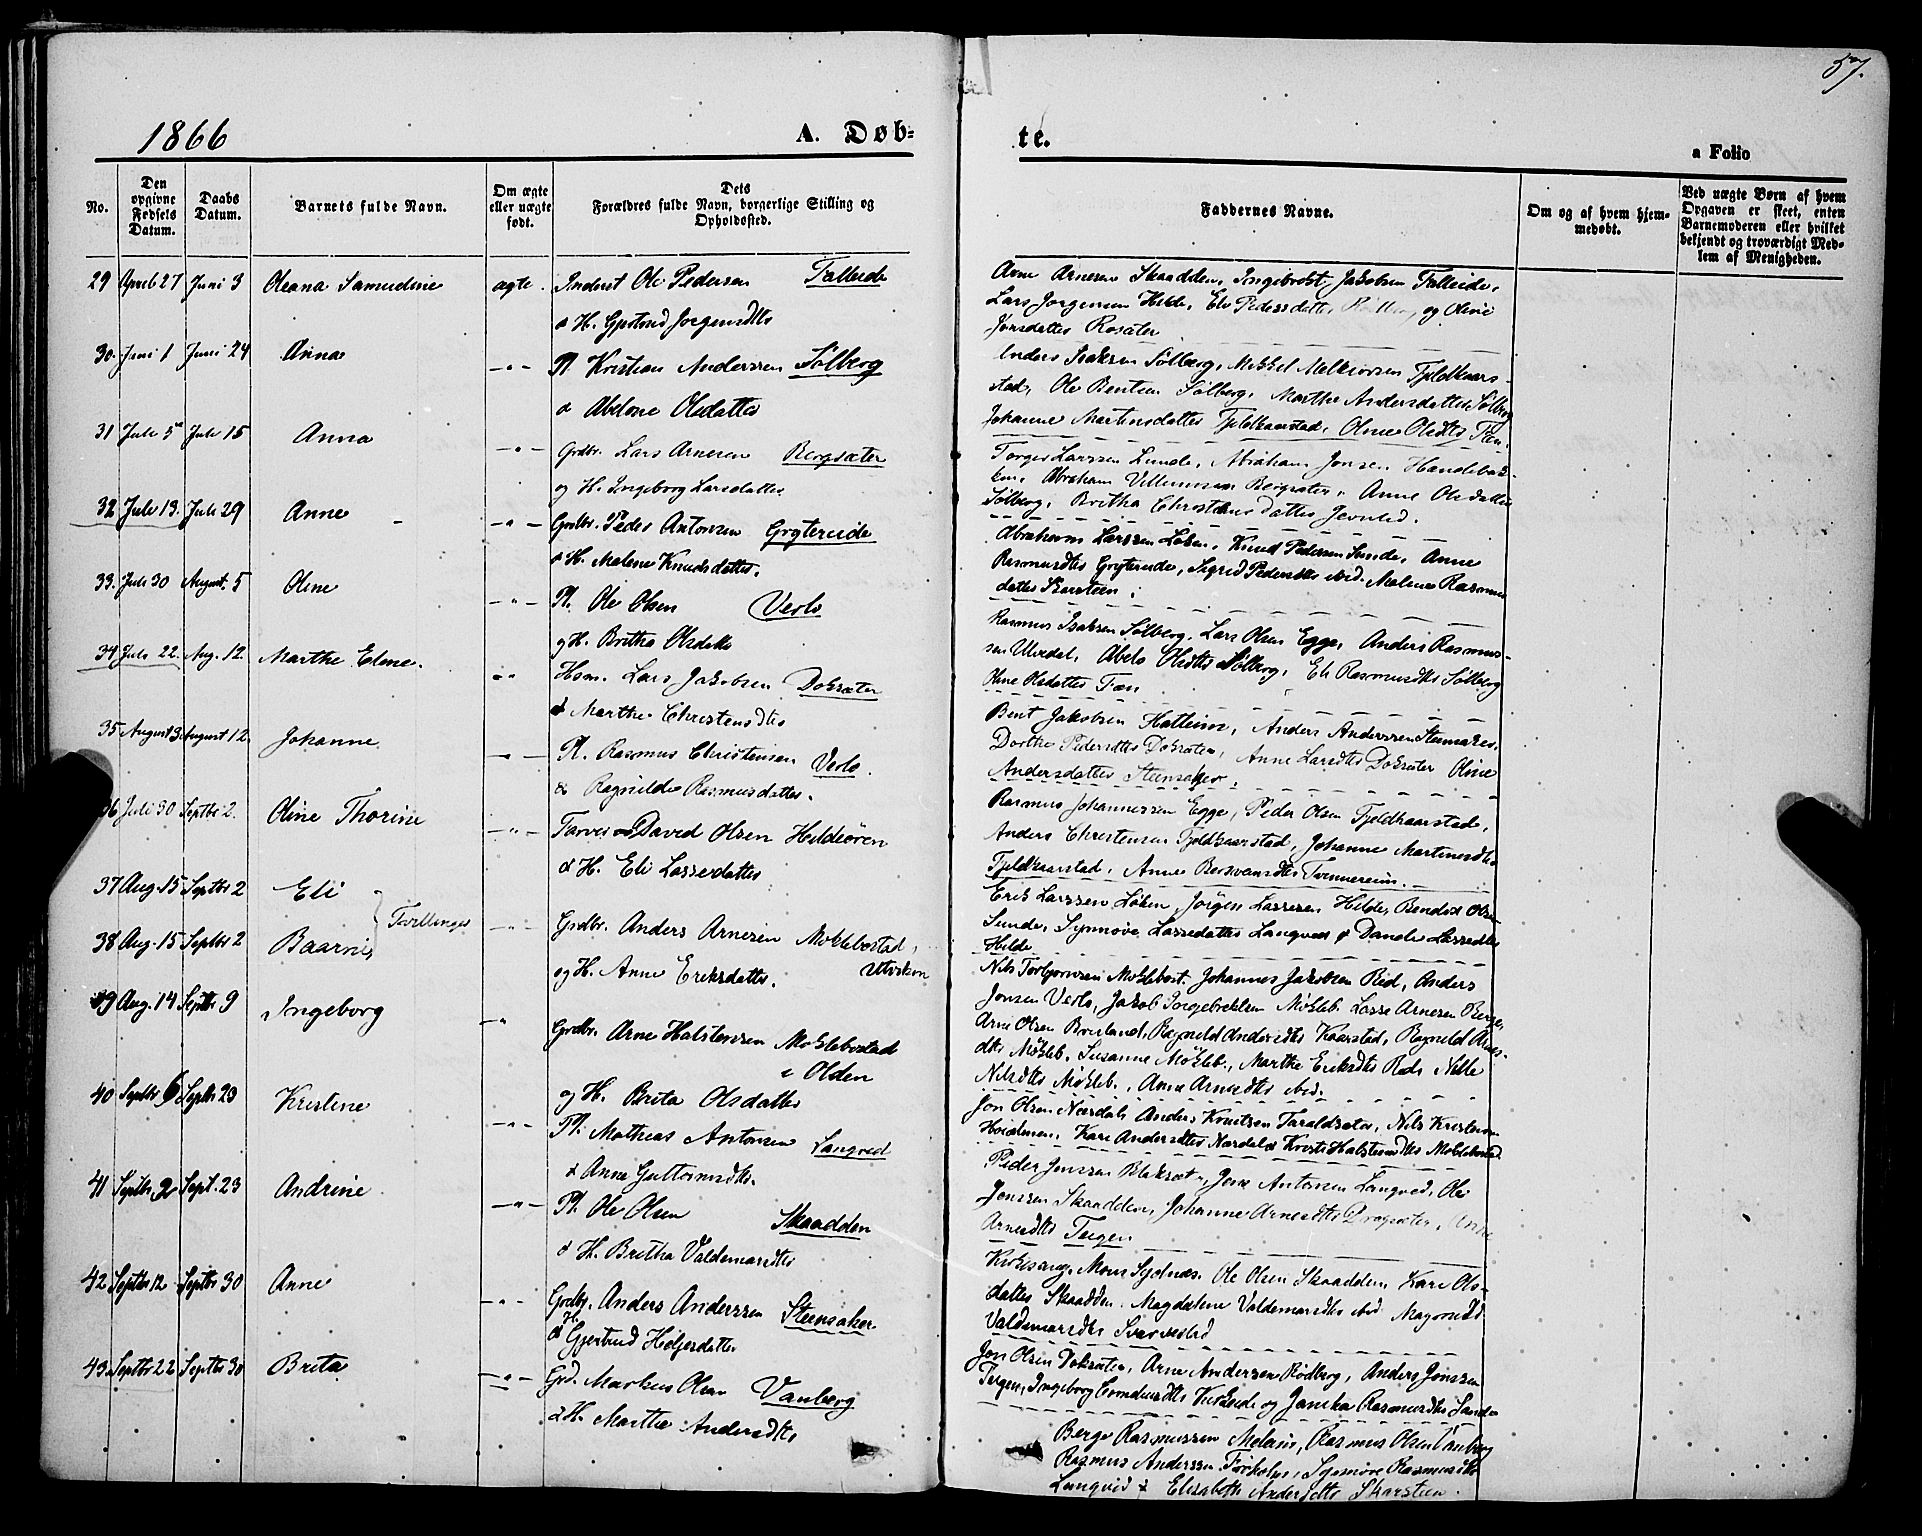 57.
1866
A. Døb-
te.
a Folio
No.
Den opgivne Fødsels Datum.
Daabs Datum.
Barnets fulde Navn.
Om ægte eller uægte født.
Dets Forældres fulde Navn, borgerlige Stilling og Opholdssted.
Faddernes Navne.
Om og af hvem hjemmedøbt.
Ved uægte Børn af hvem Opgaven er skeet, enten Barnemoderen eller hvilket bekjendt og troværdigt Medlem af Menigheden.
29 April 27 Juni 3 Oleana Samueline ægte. Inderst Ole Pedersen Falleide
& H. Gjertrud Jorgensdtr
Arne Arnesen Skaadden, Ingebrebt Jakobsen Falleide,
Lars Jorgensen Hilde, Eli Pedersdatter og Oline
Jonsdatter Rosæter
30. Juni 1 Juni 24 Anna -"- Pl. Kristian Anderssen Sølberg
& Abelone Olsdatter
Anders Isaksen Sølberg, Mikkel Melkiorsen Fjeldkaar-
stad, Ole Bentsen Sølberg, Marthe Andersdatter Sølberg
Johanne Martinsdatter Fjeldkaarstad, Oline Olsdtr
31 Juli 5 Juli 15 Anna -"- Grdbr. Lars Arnesen Bergsæter
og H. Ingeborg Larsdatter
Torger Larssen Lunde, Abraham Jonsen Handebak-
ken, Abraham Villumsen Bergsæter, Anne Olsdatter
Sølberg, Britha Christensdatter
32 Juli 13. Juli 29 Anne -"- Grdbr. Peder Antonsen Grytereide
& H. Malene Knudsdatter.
Abraham Larssen Løken, Knud Pedersen Sunde, Anne
Rasmusdtr Grytereide, Sigrid Pedersdtr ibid. Malene Rasmus-
datter Skarsteen
33. Juli 30 August. 5 Oline -"- Pl. Ole Olsen Verlo
og H. Britha Olsdatter
Rasmus Isaksen Sølberg, Lars Olsen Egge, Anders Rasmus-
sen Ulvedal, Abelo Olsdtr Sølberg, Eli Rasmusdtr Sølberg
Oline Olsdatter
34 Juli 22. Aug. 12 Marthe Eline. -"- Hsm. Lars Jakobsen Doksæter
& Marthe Christensdtr
Bent Jakobsen Hatleim, Anders Anderssen Steensaker,
Dorthe Pedersdtr Doksæter, Anne Larsdtr Doksæter Oline
Andersdatter Steensaker.
35 August 3 August 12 Johanne. -"- Pl. Rasmus Christensen Verlo.
& Ragnilde Rasmusdatter.
Rasmus Johannessen Egge, Peder Olsen Fjeldkaarstad,
Anders Christensen Fjeldkaarstad, Johanne Martinusdtr
Fjeldkaarstad, Anne Tvinnereim.
36 Juli 30 Septbr 2. Oline Thorine -"- David Olsen Hildeøren
& H. Eli Lassedatter
Erik Larssen Løken, Jörgen Lassesen Hilde, Bendix Olsen
Sunde, Synnøve Lassedatter Langved & Lassedtr
Hilde
37 Aug. 15 Septbr 2 Eli
38 Aug. 15 Septbr 2 Baarni
Tvillinger
-"- Grdbr. Anders Arnesen Moklebostad, Utviken
og H. Anne Eriksdatter.
Nils Torbjornsen Moklebost. Johannes Jakobsen Rid, Anders
Jonsen Verlo, Jakob Ingebrektsen Mökleb. Lasse Arnesen Berge,
Arne Olsen Ragnild Andersdtr Kaarstad, Ragnild Arnes-
dtr Mökleb. Susanne Mökleb., Marthe Eriksdtr
Nilsdtr Mökleb., Anne Arnesdtr ibid.
39 Aug. 14 Septbr 9 Ingeborg -"- Grdbr. Arne Halstensen Moklebostad
i Olden
og H. Brita Olsdatter
Jon Olsen Nærdal, Anders Knutsen Taraldsæter, Nils Kristensen
Kari Andersdtr Nærdal & Kristi Halstensdtr Moklebostad.
40 Septbr 6 Septbr 23 Kristine -"- Pl. Mathias Antonsen Langved
& Anne Guttormsdtr.
Peder Jonssen Blaksæt, Jens Antonsen Langved, Ole
Jonssen Skaadden, Johanne Arnesdtr
Arnesdtr Teigen
41 Septbr 2 Sept. 23 Andrine -"- Pl. Ole Olsen Skaadden
& H. Britha Valdemarsdtr
Kirkesang. Mons Sydnæs. Ole Olsen Skaadden Kari Ols-
datter Skaadden. Magdalene Valdemarsdtr ibid
Valdemarsdtr
42 Septbr 12 Septbr 30 Anne -"- Grdbr. Anders Anderssen Steensaker
& H. Gjertrud Heljesdatter
Jon Olsen Doksæter, Arne Anderssen Rødberg, Anders Jonssen
Teigen, Ingeborg Korneliusdtr Kirkeide og Janika Rasmusdtr Sande
43 Septbr 22 Septbr 30 Brita -"- Grd. Markus Olsen Vanberg
& H. Marthe Andersdtr
Berge Rasmussen Melein, Rasmus Olsen Vanberg
Rasmus Anderssen Synnøve Rasmusdtr
Langved & Elisabeth Andersdtr Skarsteen.